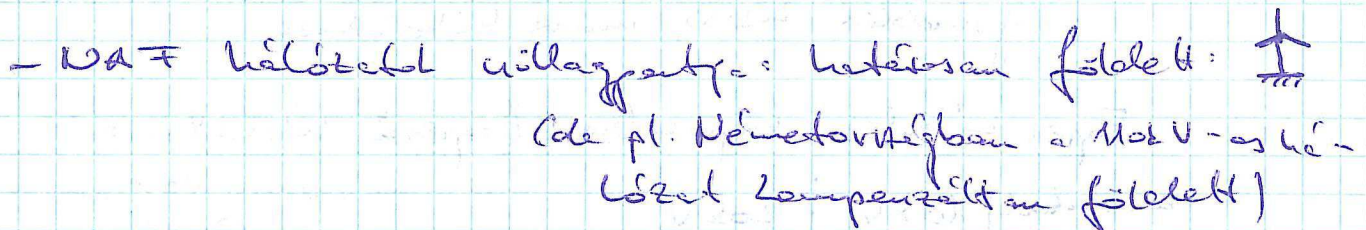 - NAF hálózatok csillagpontja: hatásosan földelt:
(de pl. Németországban a 110kV-os há-
lózat kompenzáltan földelt)